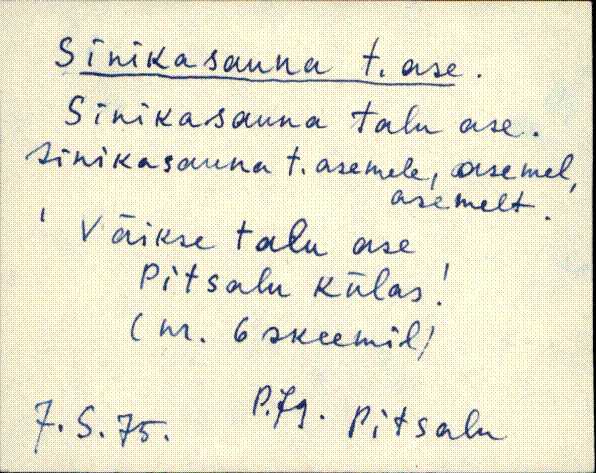 Sinikasauna t. ase.
Sinikasauna talu ase.
Sinikasauna t. asemele, asemel,
asemelt.
Väikse talu ase
Pitsalu külas!
(nr. 6 skeemil)
7.5.75. Pitsalu